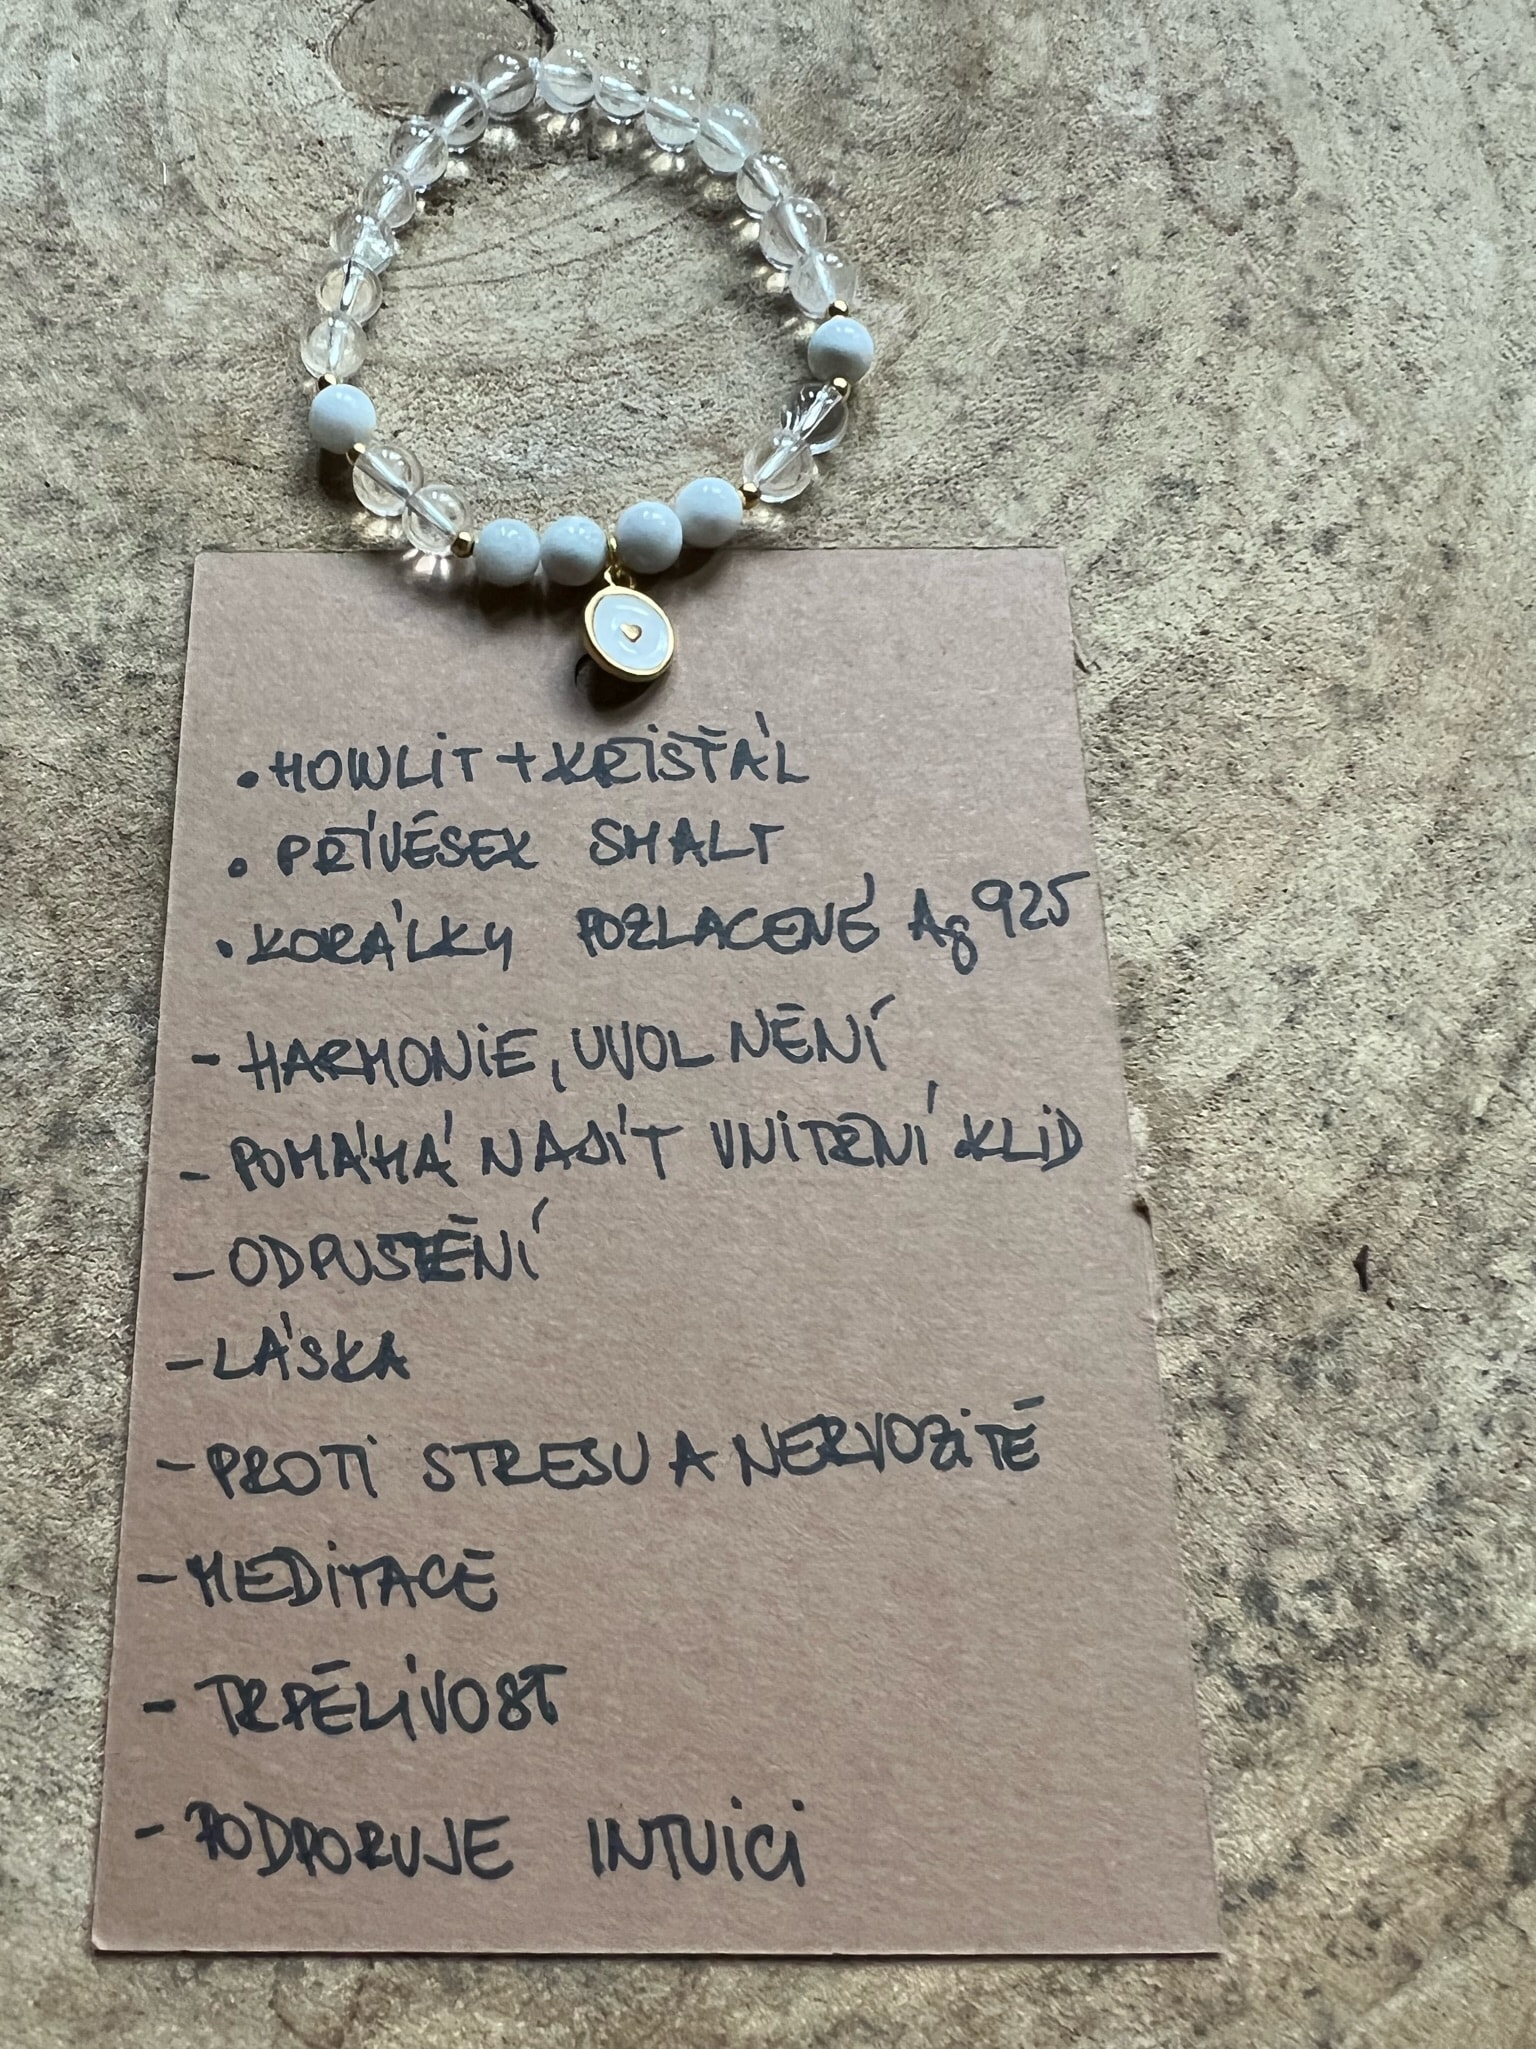 • HOWLiT + KŘiŠŤÁL
• PŘÍVĚSEK SMALT
• KORÁLKY POZLACENÉ Ag 925
- HARMONiE, UVOLNĚNÍ
- POMÁHÁ NAJÍT VNiTŘNÍ KLiD
- ODPUŠTĚNÍ
- LÁSKA
- PROTi STRESU A NERVOZiTĚ
- MEDiTACE
- TRPĚLiVOST
- PODPORUJE INTUiCi